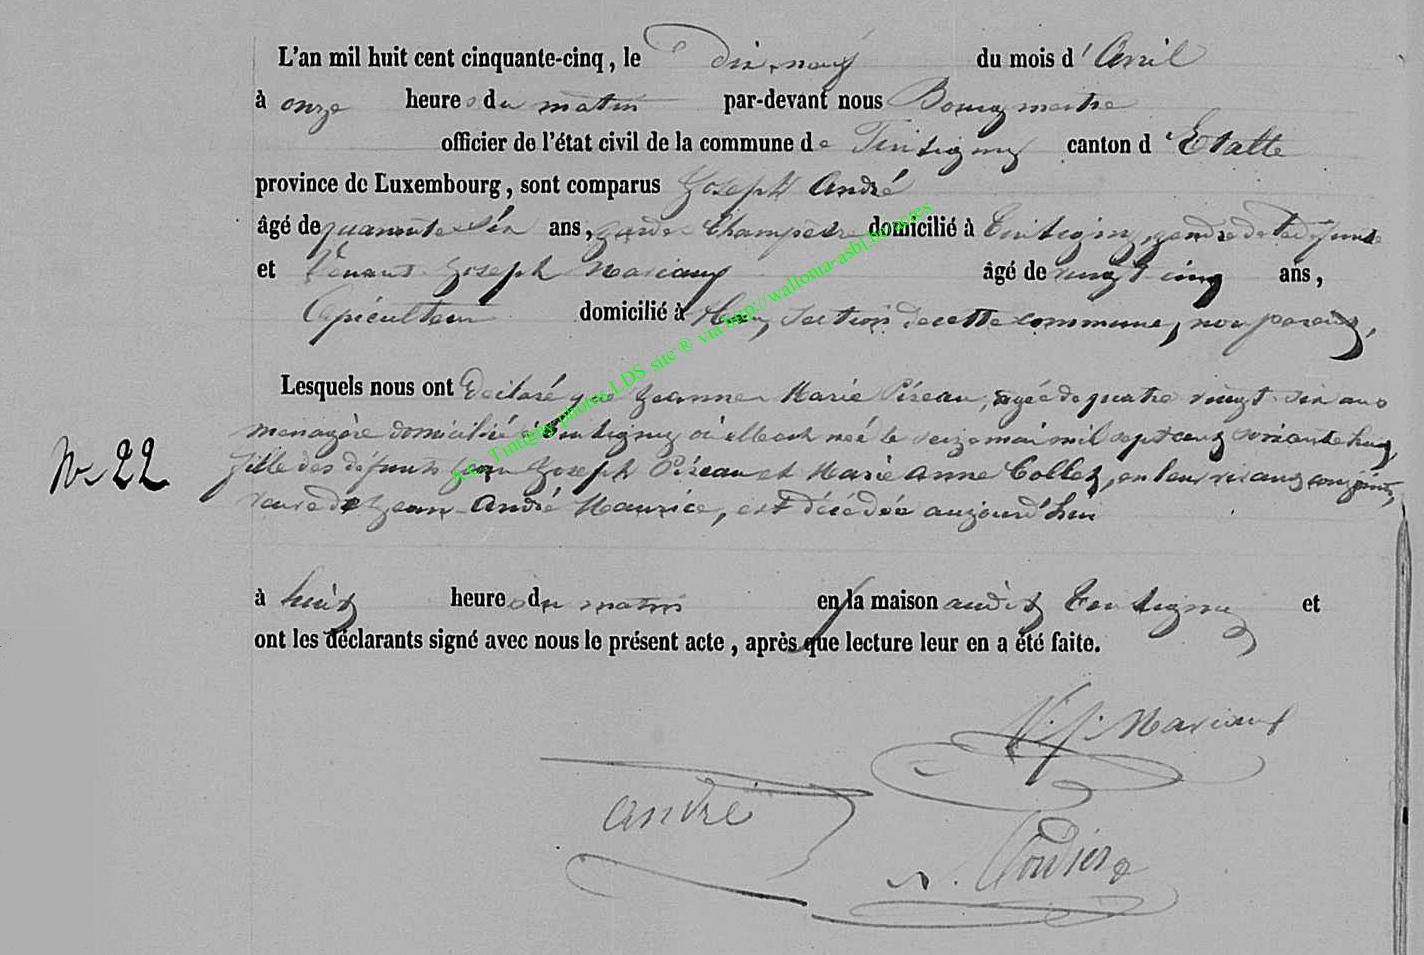 L'an mil huit cent cinquante-cinq, le Dix neuf du mois d'Avril
à onze heures du matin par-devant nous Bourgmestre
officier de l'état civil de la commune de Tintigny canton d'Etalle
province de Luxembourg, sont comparus Joseph André
âgé de quarante six ans, garde Champêtre domicilié à Tintigny, gendre de la défunte
et Joseph Mariaux âgé de vingt cinq ans,
Apiculteur domicilié à section de cette commune, non parent,
Lesquels nous ont Déclaré que Jeanne Marie Pireau, agée de quatre vingt six ans
menagère domiciliée à Tintigny où elle est née le seize mai mil sept cent soixante huit,
N° 22
fille des défunts Jean Joseph Pireau et Marie Anne Collet, en leur vivant conjoints,
veuve de Jean André Maurice, est décédée aujourd'hui
à huit heures du matin en la maison audit Tintigny et
ont les déclarants signé avec nous le présent acte, après que lecture leur en a été faite.
Mariaux
andré
A.C. Tintigny photos LDS site ® via http://wallonia-asbl.be/actes